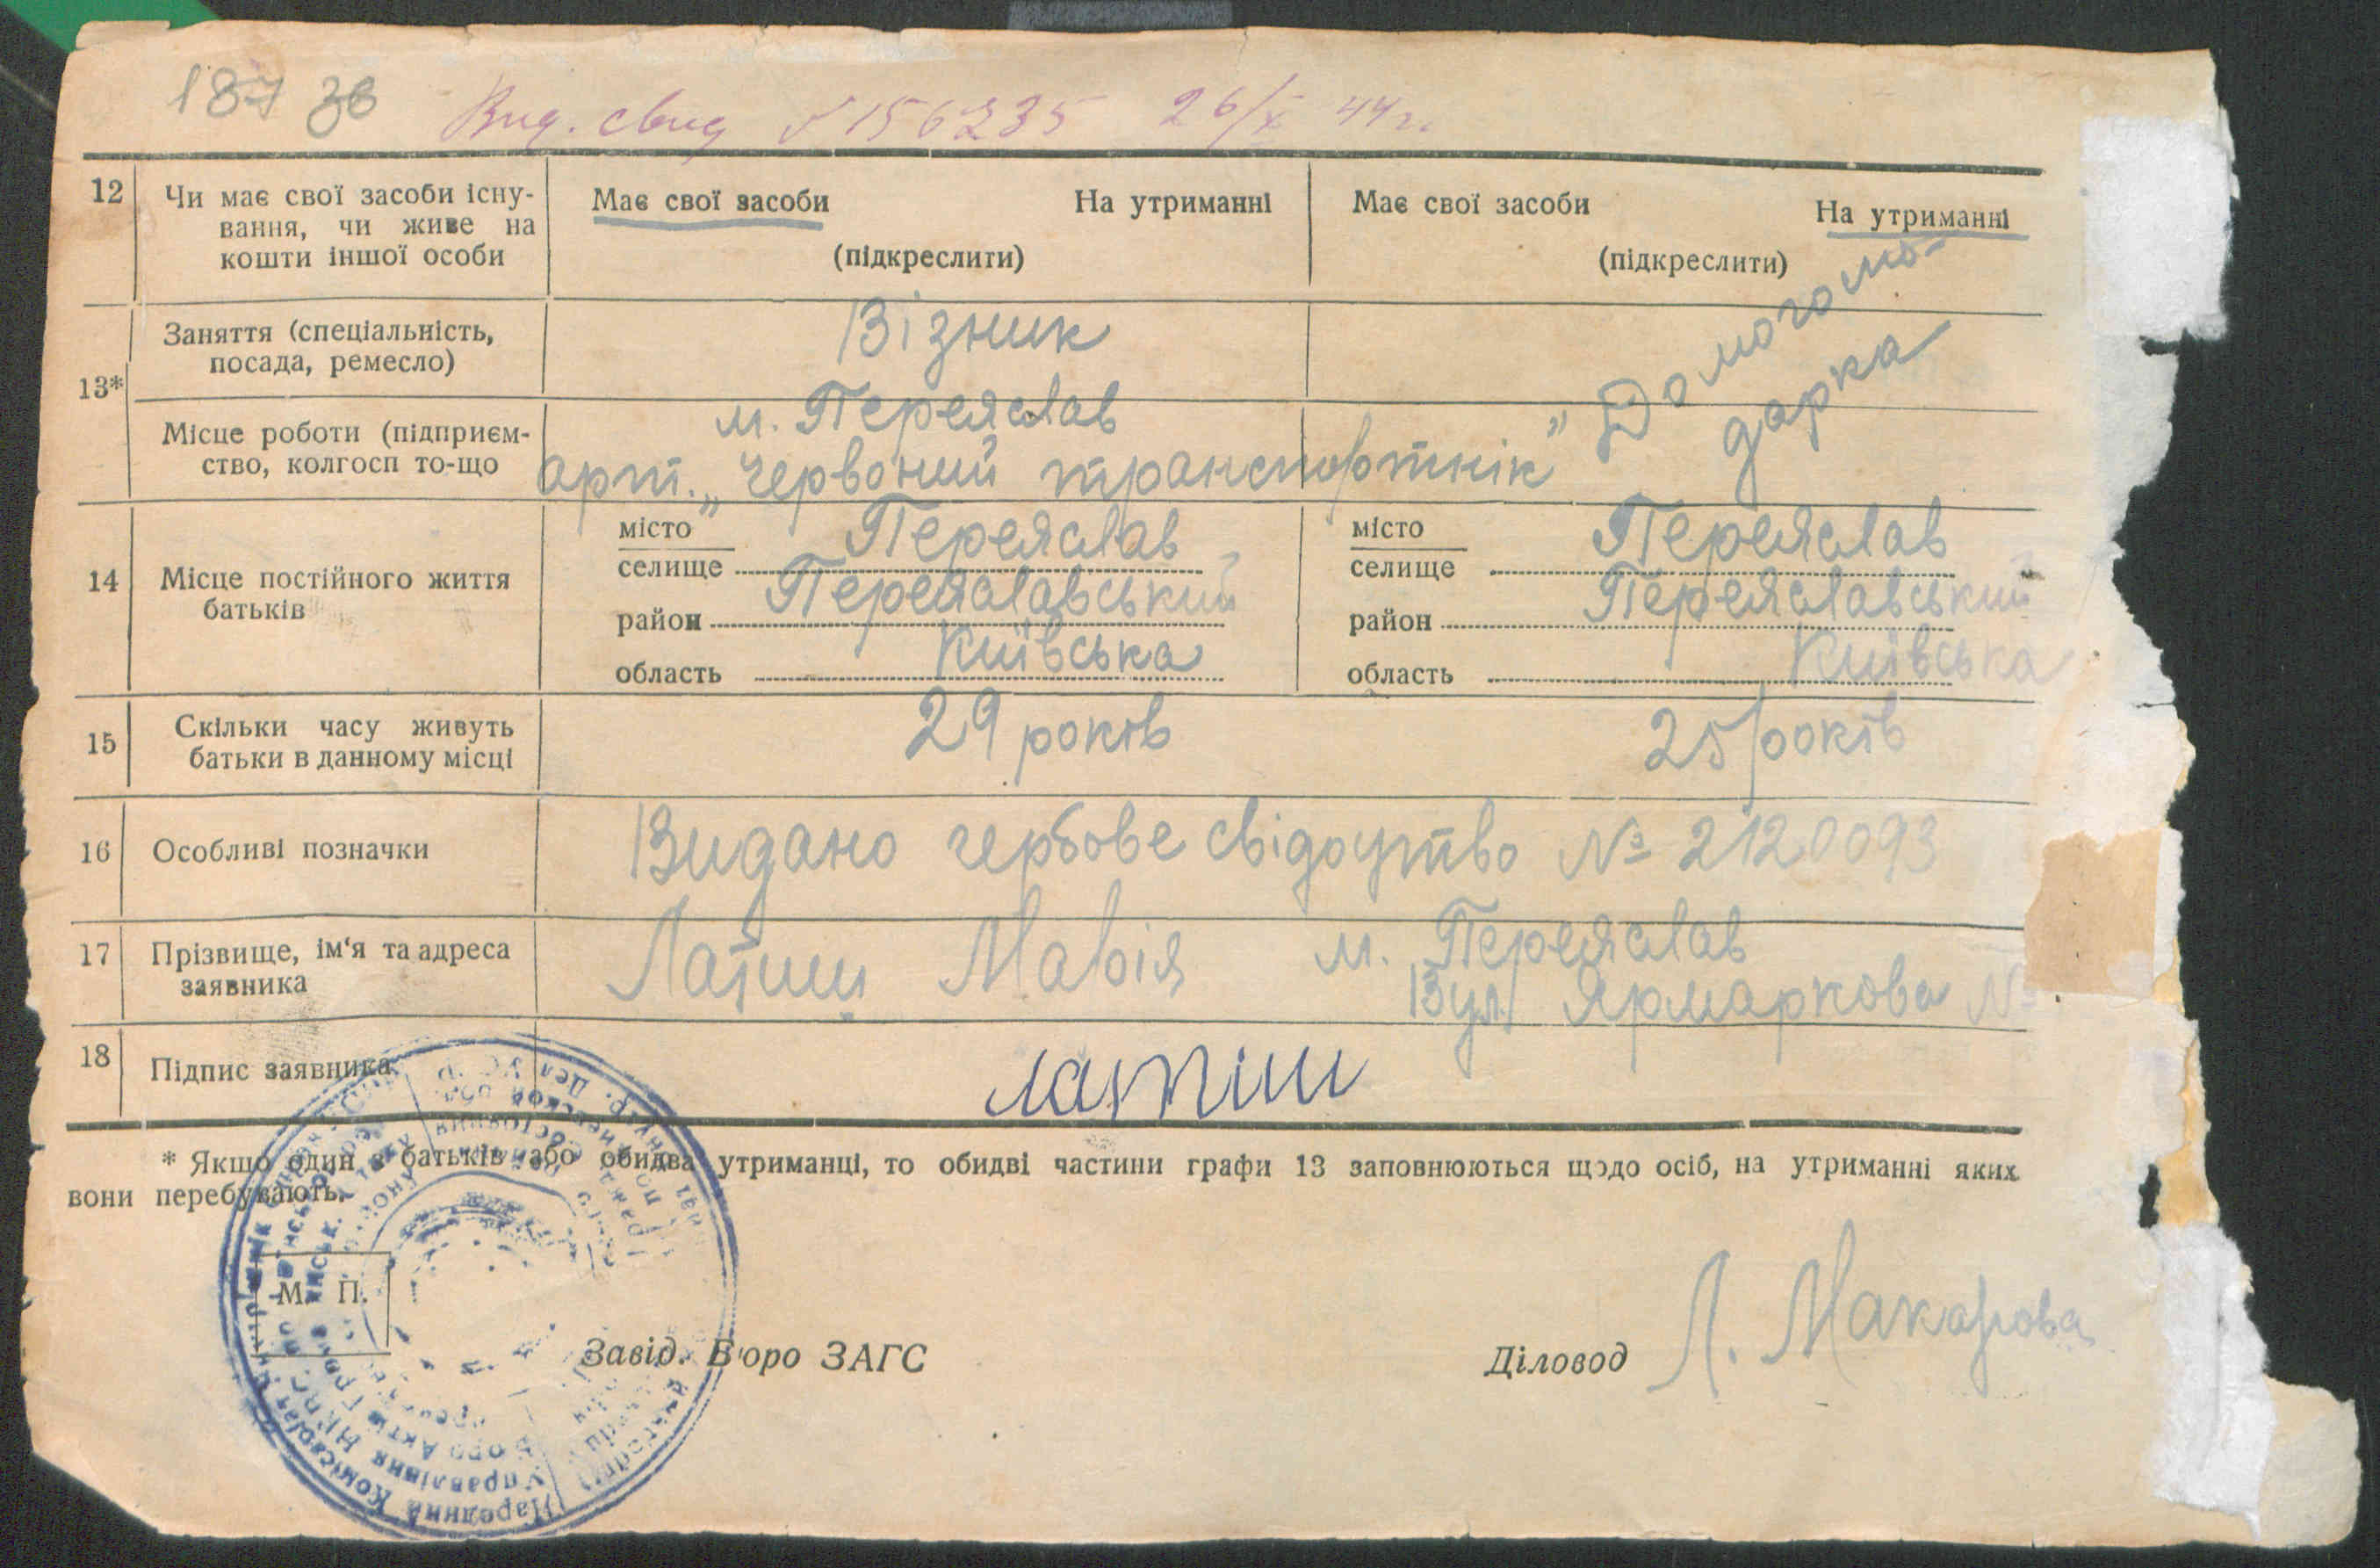 187 зв
Вид. свид № 156235 26/X 44 г.
12 Чи має свої засоби існу-
вання, чи живе на
кошти іншої особи
Має свої засоби На утриманні
(підкреслити)
Має свої засоби На утриманні
(підкреслити)
13*
Заняття (спеціальність,
посада, ремесло)
Візник
Домогоспо-
дарка
Місце роботи (підприєм-
ство, колгосп то-що
м. Переяслав
арт. „Червоний транспортнік"
14 Місце постійного життя
батьків
місто
селище Переяслав
район Переяславський
область Київська
місто
селище Переяслав
район Переяславський
область Київська
15 Скільки часу живуть
батьки в данному місці
29 років
25 років
16 Особливі позначки
Видано гербове свідоцтво № 2120093
17 Прізвище, ім'я та адреса
заявника
Латиш Марія м. Переяслав
Вул. Ярмаркова №
18 Підпис заявника
латиш
* Якщо один з батьків або обидва утриманці, то обидві частини графи 13 заповнюються щодо осіб, на утриманні яких
вони перебувають.
М. П.
Завід. Бюро ЗАГС
Діловод Л. Макарова
Народний Комісаріат
Управління НКВС
Бюро Актів